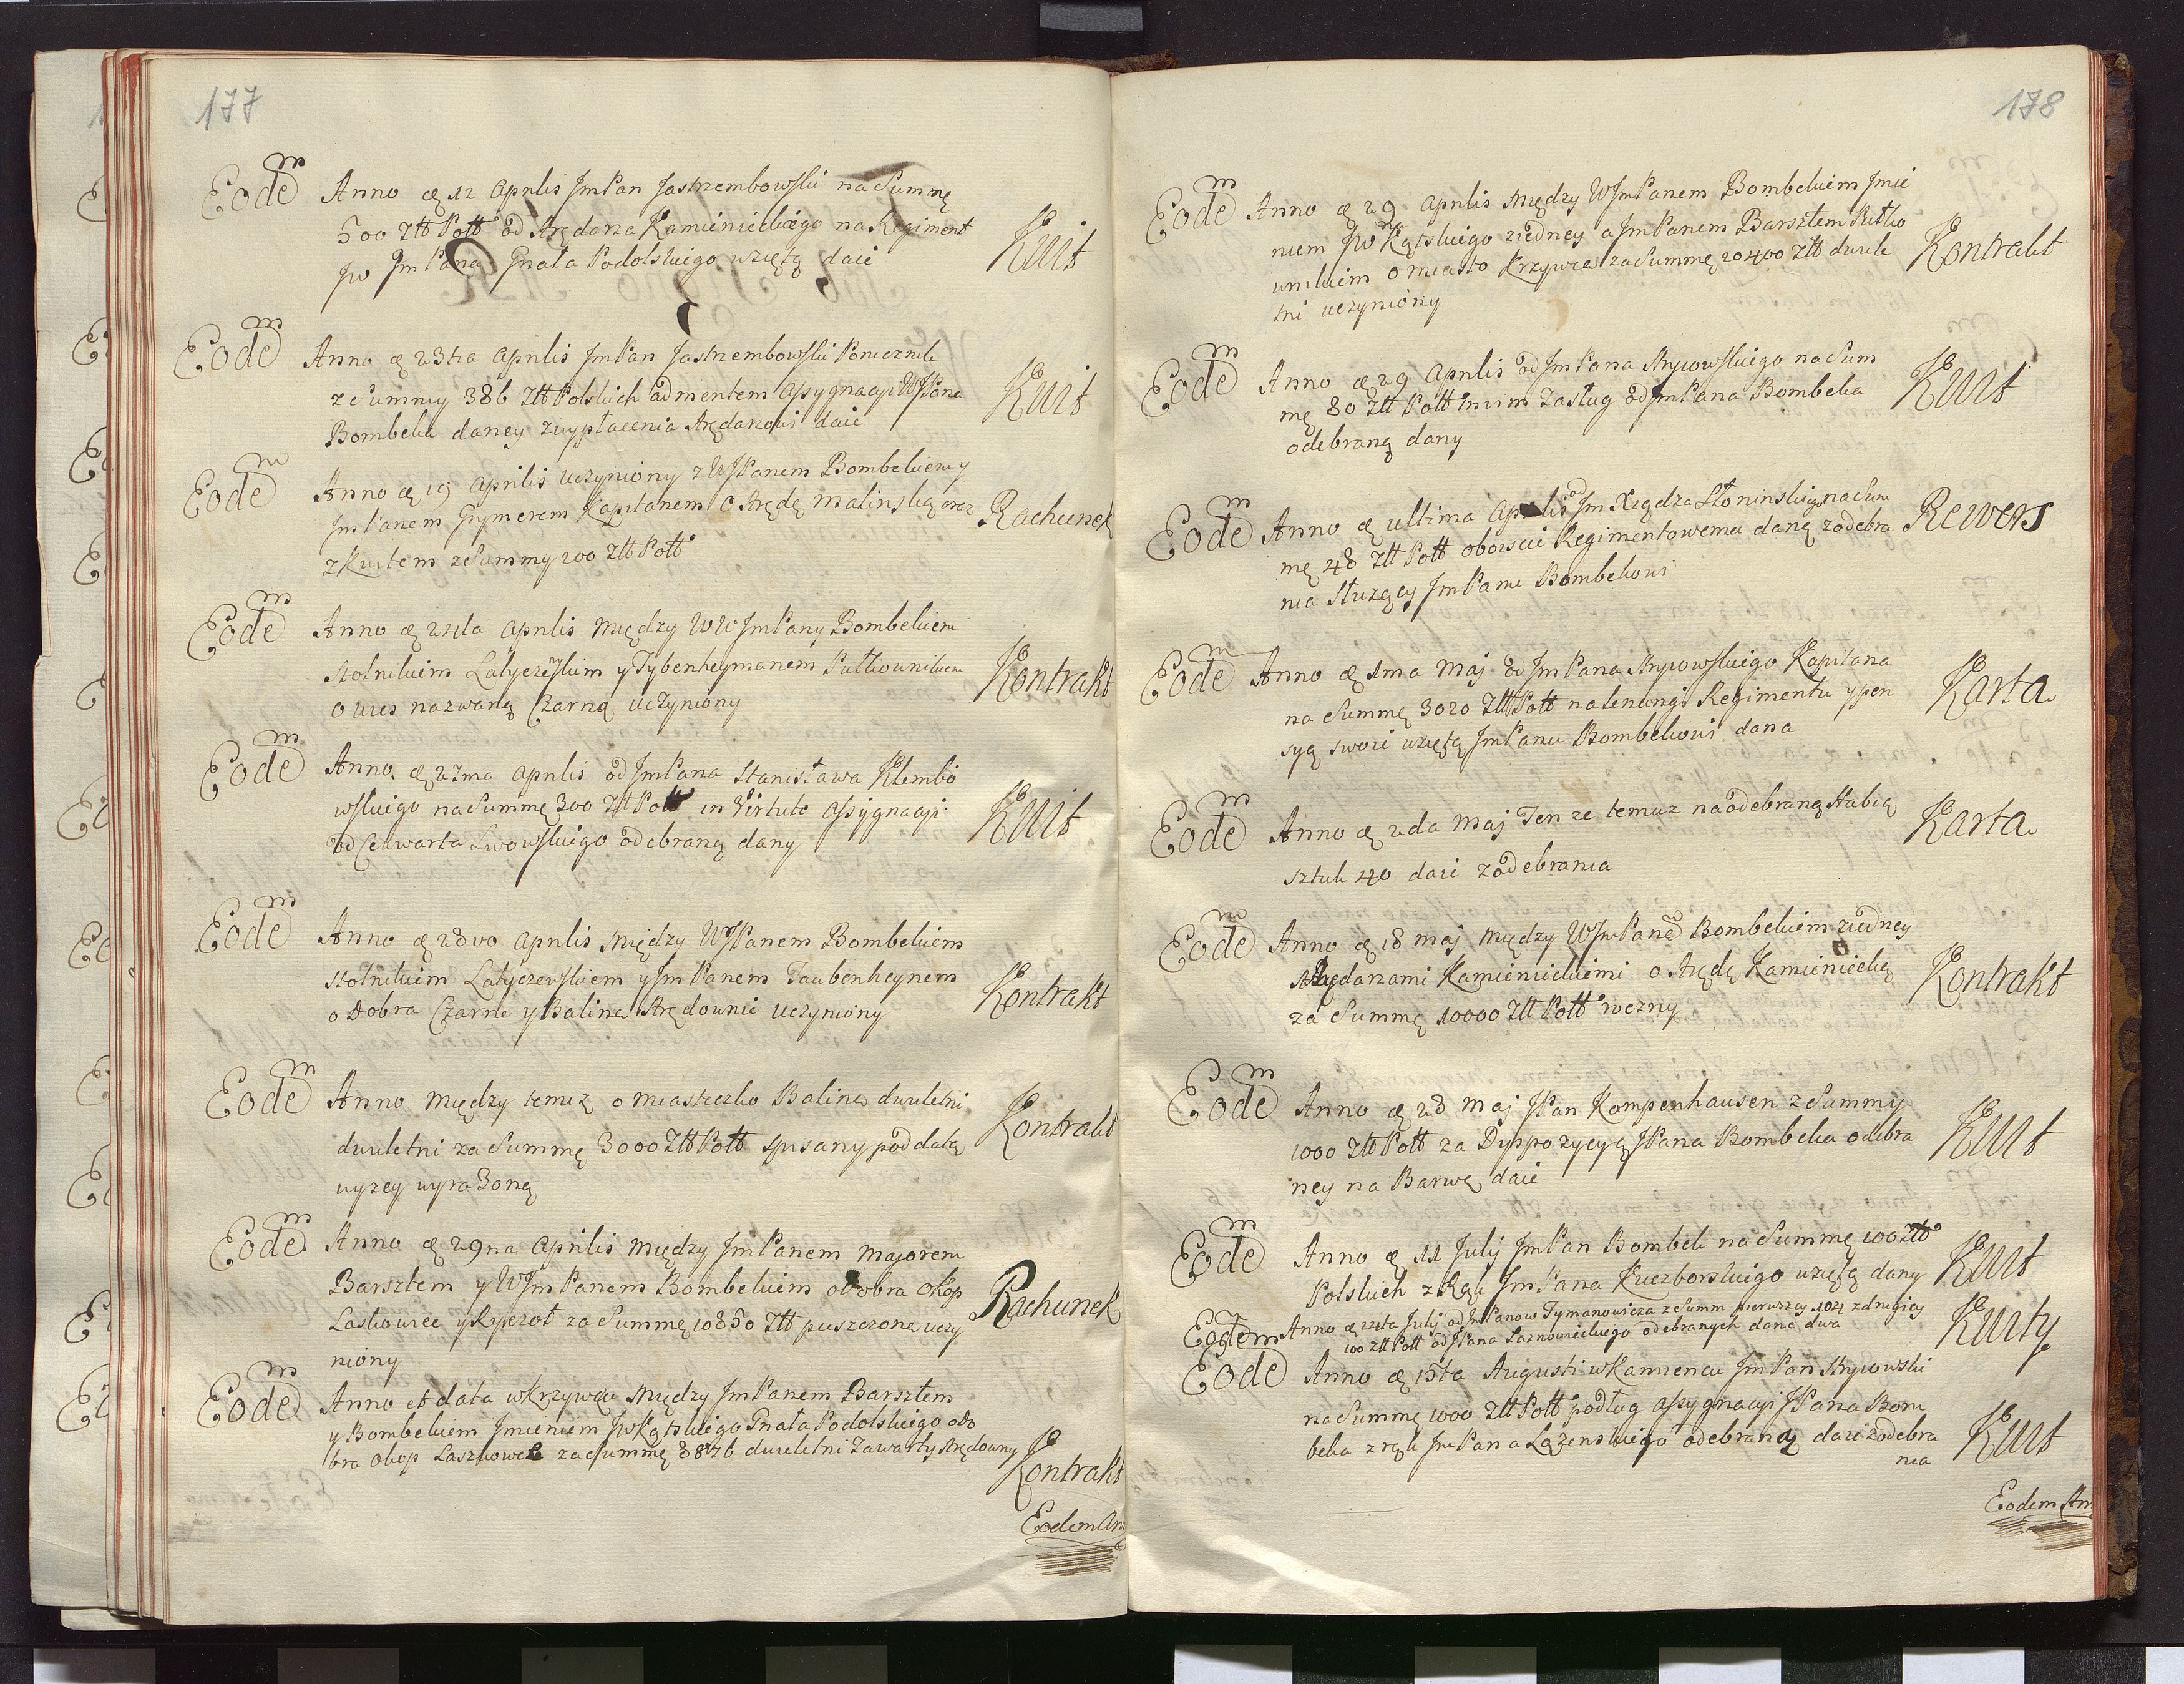 177
Eodem Anno æ 12 Aprilis JmPan Jastrzembowski na Summę
500 Złt Polł od Arędarza Kamienieckiego na Regiment
Jw JmPana Gnała Podolskiego wziętą daie Kwit
Eodem Anno æ 23tia Aprilis JmPan Jastrzembowski Porucznik
z Summy 386 Złt Polskich ad mentem Assygnacyi WJPana
Bombeka daney z wypłacenia Arędarzowi daie Kwit
Eodem Anno æ 19 Aprilis uczyniony z WJPanem Bombekiem y
JmPanem Grymerem Kapitanem o Arędę Malinską oraz Rachunek
z Kwitem z Summy 200 Złt Polł
Eodem Anno æ 24ta Aprilis między WW JmPany Bombekiem
Stolnikiem Latyczewskim y Tybenheymanem Pułkownikiem
o wies nazwaną Czarną uczyniony Kontrakt
Eodem Anno æ 27ma Aprilis od JmPana Stanisława Klembo
wskiego na Summę 300 Złt Polł in Virtute Assygnacyi
od Cekwarta Lwowskiego odebraną dany Kwit
Eodem Anno æ 28vo Aprilis między WJPanem Bombekiem
Stolnikiem Latyczewskiem y JmPanem Taubenheynem
o Dobra Czarne y Balina Arędownie uczyniony Kontrakt
Eodem Anno między temiż o Miasteczko Balina dwuletni
dwuletni za Summę 3000 Złt Polł spisany pod datą
wyzey wyrażoną Kontrakt
Eodem Anno æ 29na Aprilis między JmPanem Majorem
Barsztem y WJmPanem Bombekiem o Dobra Okop
Laskowce y Rycrot za Summę 10850 Złt puszczone uczy
niony Rachunek
Eodem Anno et data w Krzywczu między JmPanem Barsztem
y Bombekiem Jmieniem JwKątskiego Gnała Podolskiego o Do
bra Okop Laszkowce za Summę 8876 dwuletni Zawarty Arędowny
Kontrakt
Eodem An
178
Eodem Anno æ 29 Aprilis między WJmPanem Bombekiem Jmie
niem Jw Kątskiego z iedney a JmPanem Barsztem Pułko
wnikiem o Miasto Krzywcze za Summę 20400 Złt dwule
tni uczyniony Kontrakt
Eodem Anno æ 29 Aprilis od JmPana Stryiowskiego na Sum
mę 80 Złt Polł in vim Zasług od JmPana Bombeka
odebraną dany Kwit
Eodem Anno æ ultima Aprilis od Jm Xiędza Słoninskiego na Sum
mę 48 Złt Polł oboiści Regimentowemu daną z odebra
nia służący JmPanu Bombekowi Rewers
Eodem Anno æ 1ma Maj od JmPana Stryiowskiego Kapitana
na Summę 3020 Złt Polł na lenungi Regimentu y pen
syą swoie wziętą JmPanu Bombekowi dana Karta
Eodem Anno æ 2da Maj Ten ze temuz na odebraną Habią
sztuk 40 daie z odebrania Karta
Eodem Anno æ 18 Maj między WJmPanem Bombekiem z iedney
Arędarzami Kamienieckiemi o Arędę Kamieniecką
za Summę 10000 Złt Polł roczny Kontrakt
Eodem Anno æ 28 Maj JPan Kompenhausen z Summy
1000 Złt Polł za Dyspozycyą JPana Bombeka odebra
ney na Barwę daie Kwit
Eodem Anno æ 11 Julij JmPan Bombek na Summę 100 Złt
Polskich z Rąk JmPana Kuczborskiego wziętą dany Kwit
Eodem Anno æ 24ta Julij od JmPanow Tymanowicza z Summ pierwszey 104 z drugiey
100 Złt Polł od JPana Laznowieckiego odebranych dane dwa Kwity
Eodem Anno æ 15ta Augusti w Kamiencu JmPan Stryiowski
na Summę 1000 Złt Polł podług Assygnacyi JPana Bom
beka z rąk JmPana Łązenskiego odebraną daie z odebra
nia Kwit
Eodem An